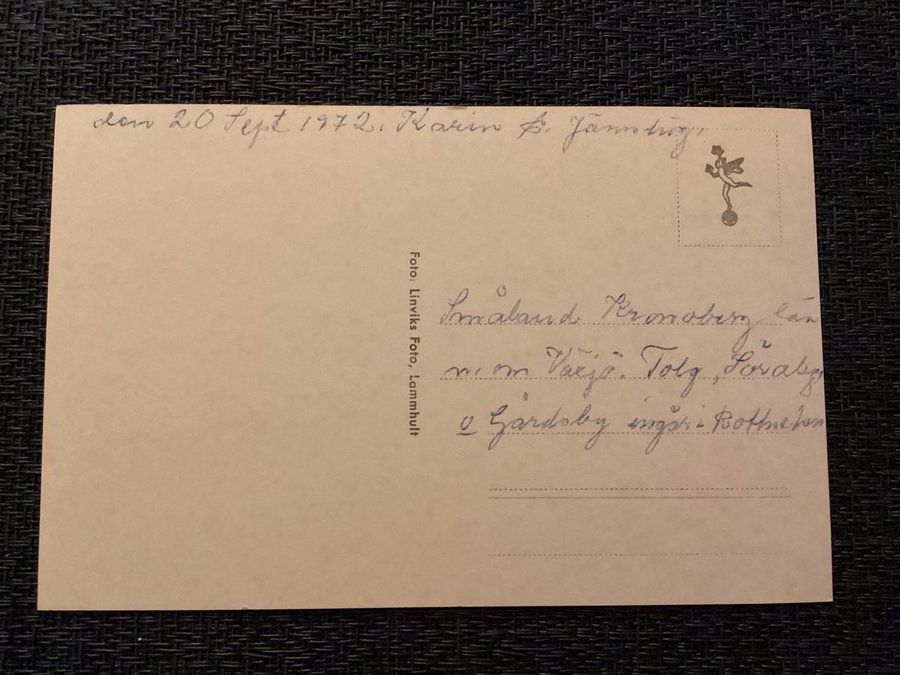 den 20 Sept 1972. Karin
Foto: Linviks Foto, Lammhult
Småland Kronoberg län
n. om Växjö. Tolg, Söraby
o Gårdsby ingår i Rottne